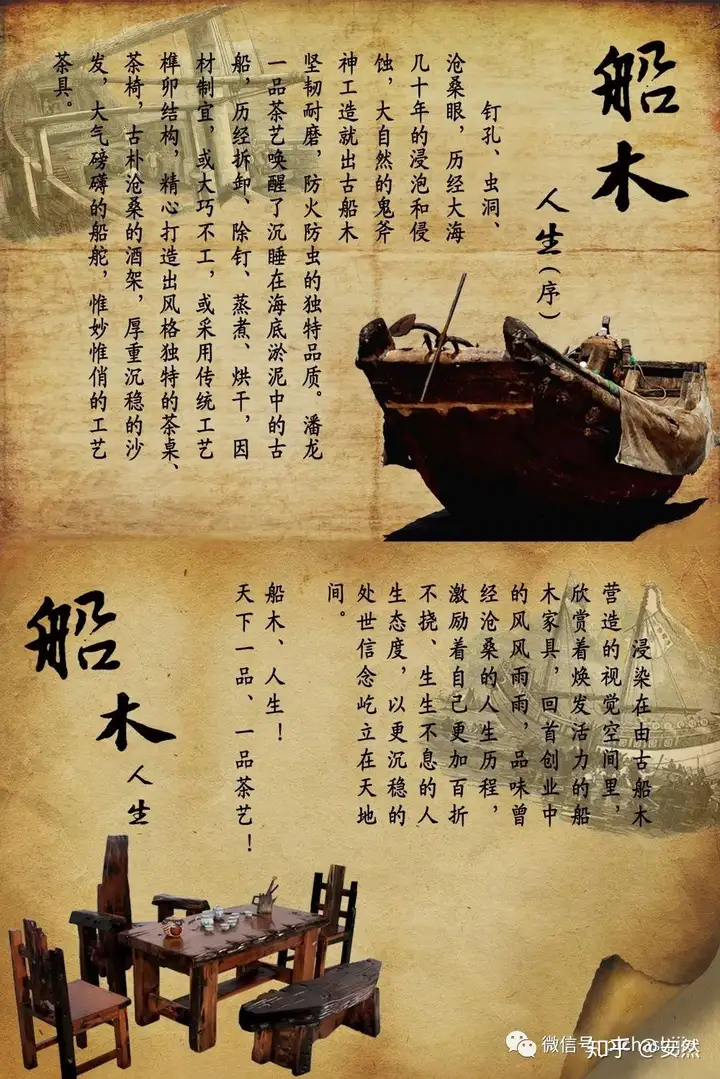 船木
人生(序)
钉孔、虫洞、
沧桑眼,历经大海
几十年的浸泡和侵
蚀,大自然的鬼斧
神工造就出古船木
坚韧耐磨,防火防虫的独特品质。潘龙
一品茶艺唤醒了沉睡在海底淤泥中的古
船,历经拆卸、除钉、蒸煮、烘干,因
材制宜,或大巧不工,或采用传统工艺
榫卯结构,精心打造出风格独特的茶桌、
茶椅,古朴沧桑的酒架,厚重沉稳的沙
发,大气磅礴的船舵,惟妙惟俏的工艺
茶具。
浸染在由古船木
营造的视觉空间里,
欣赏着焕发活力的船
木家具,回首创业中
的风风雨雨,品味曾
经沧桑的人生历程,
激励着自己更加百折
不挠、生生不息的人
生态度,以更沉稳的
处世信念屹立在天地
间。
船木、人生!
天下一品、一品茶艺!
船木
人生
微信号
知乎 @安然